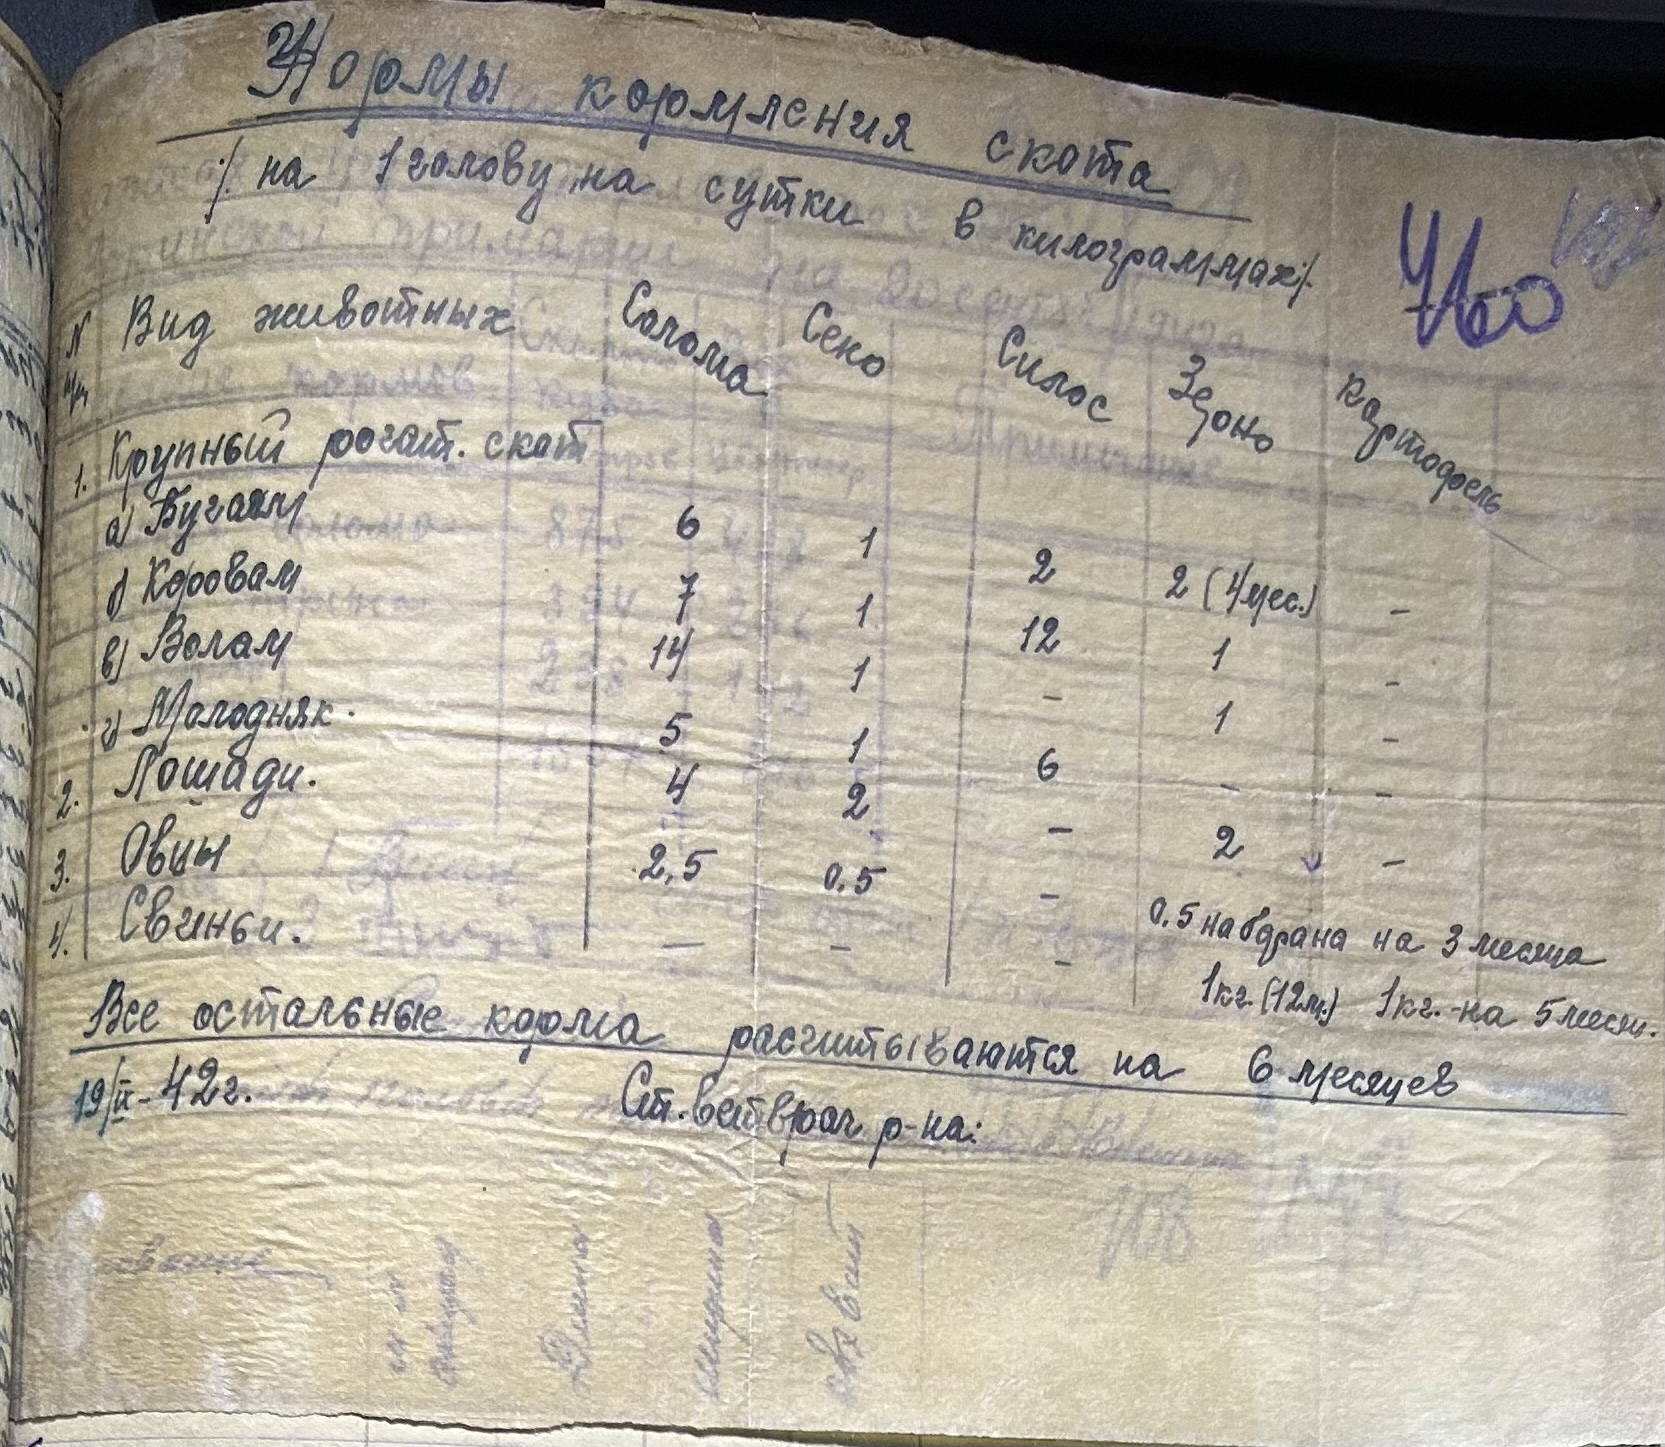 Нормы кормления скота
⁒ на 1 голову на сутки в килограммах⁒
N п/п Вид животных Солома Сено Силос Зерно Картофель
1. Крупный рогат. скот
а) Бугаям 6 1 2 2 (4 мес.) -
б) Коровам 7 1 12 1 -
в) Волам 14 1 - 1 -
г) Молодняк. 5 1 6 - -
2. Лошади. 4 2 - 2 -
3. Овцы 2,5 0.5 - 0.5 на барана на 3 месяца
4. Свиньи. - - - 1 кг. (12 м.) 1 кг. на 5 месяц.
Все остальные корма расчитываются на 6 месяцев
19/II-42 г. Ст. ветврач р-на:
460